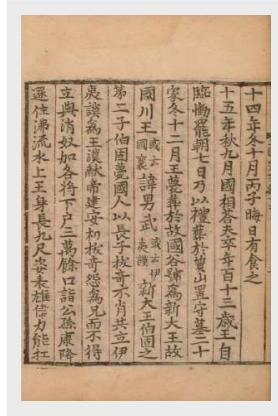 十四年冬十月丙子晦日有食之
十五年秋九月國相答夫卒年百十三歲王自
臨慟罷朝七日乃以禮葬於質山置守墓二十
家冬十二月王薨葬於故國谷號爲新大王故
國川王或云國襄諱男武或云伊夷謨新大王伯固之
第二子伯固薨國人以長子拔奇不肖共立伊
夷謨爲王漢獻帝建安初拔奇怨爲兄而不得
立與消奴加各將下戶三萬餘口詣公孫康降
還住沸流水上王身長九尺姿表雄偉力能扛